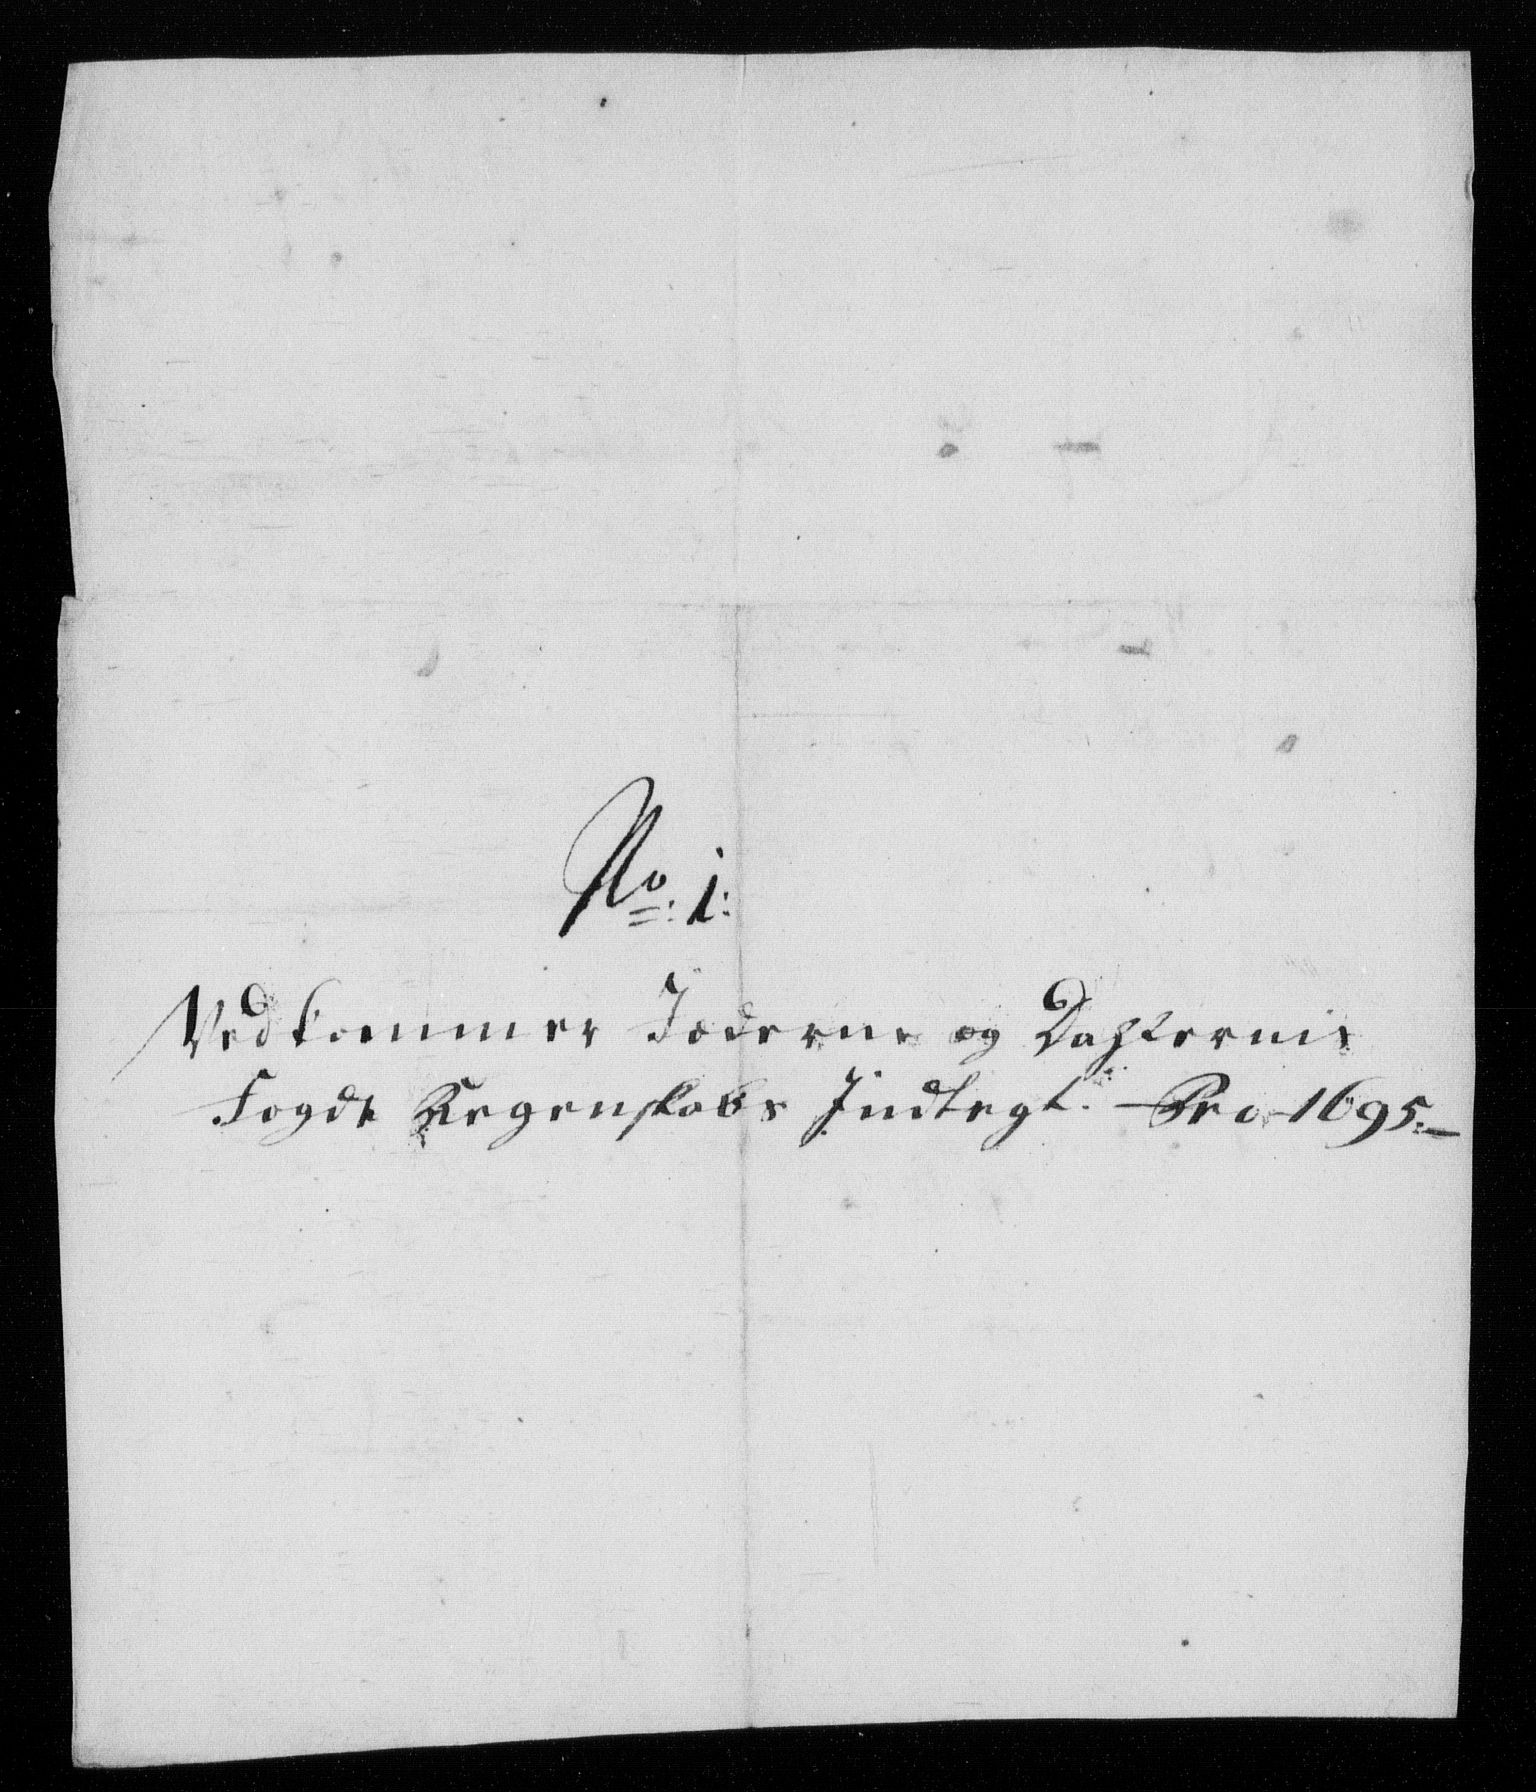 No: 1:
Vedkommer Jæderns og Dahlernis
Fogdr Regenskabs Indtegt. Pro 1695.